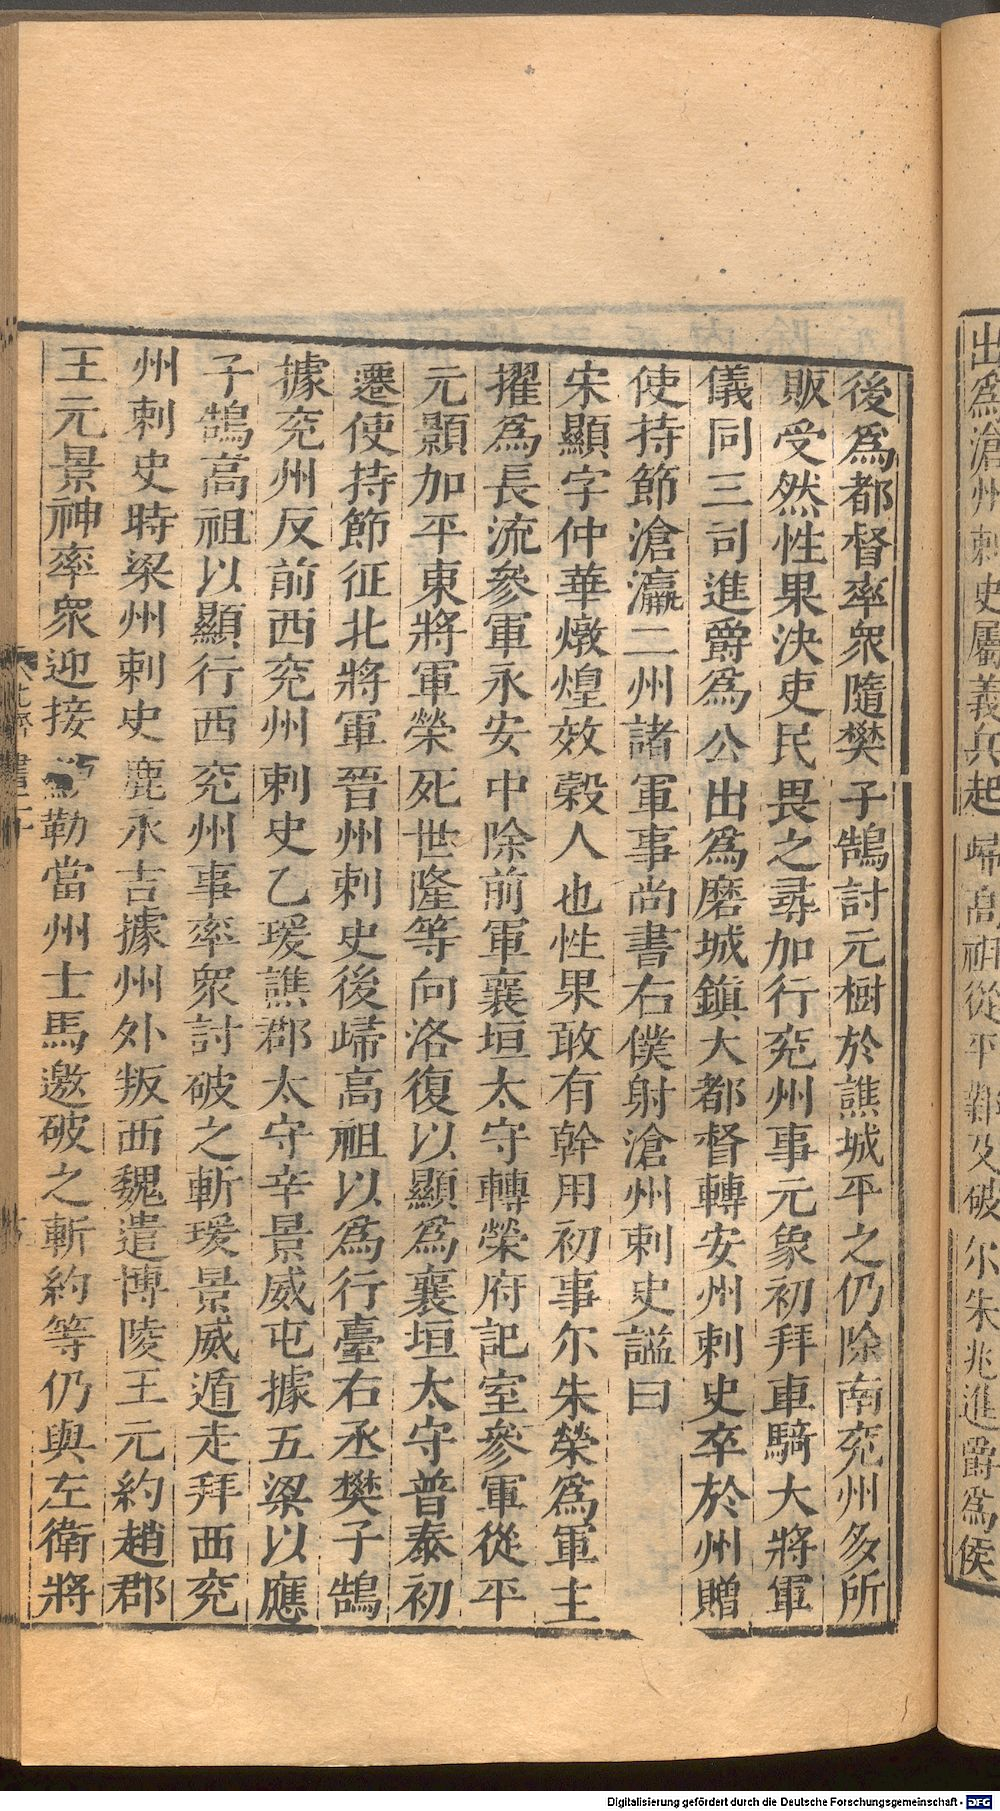 出爲滄州刺史屬義兵起歸高祖從平鄴及破尔朱兆進爵爲侯
後爲都督率衆隨樊子鵠討元樹於譙城平之仍除南兖州多所
販受然性果決吏民畏之尋加行兖州事元象初拜車騎大將軍
儀同三司進爵爲公出爲磨城鎮大都督轉安州刺史卒於州贈
使持節滄瀛二州諸軍事尚書右僕射滄州刺史謚曰
宋顯字仲華燉煌效穀人也性果敢有幹用初事尔朱榮爲軍主
擢爲長流參軍永安中除前軍襄垣太守轉榮府記室參軍從平
元顥加平東將軍榮死世隆等向洛復以顯爲襄垣太守普泰初
遷使持節征北將軍晉州刺史後歸高祖以爲行臺右丞樊子鵠
據兖州反前西兖州刺史乙瑗譙郡太守辛景威屯據五梁以應
子鵠高祖以顯行西兖州事率衆討破之斬瑗景威遁走拜西兖
州刺史時梁州刺史鹿永吉據州外叛西魏遣博陵王元約趙郡
王元景神率衆迎接勒當州士馬邀破之斬約等仍與左衛將
北齊書二十
Digitalisierung gefördert durch die Deutsche Forschungsgemeinschaft - DFG